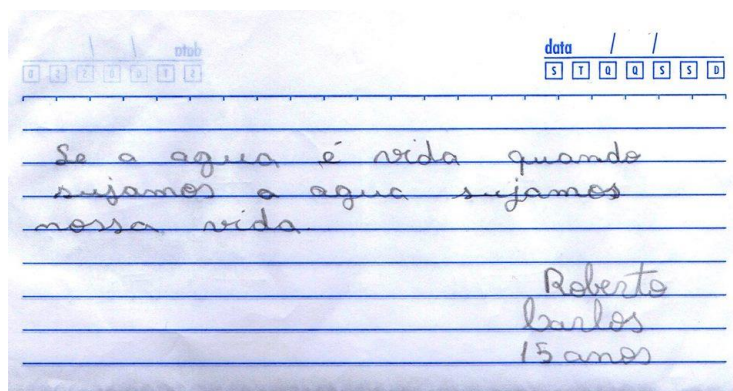 data / /
S T Q Q S S D
Se a agua é vida quando
sujamos a agua sujamos
nossa vida.
Roberto
Carlos
15 anos